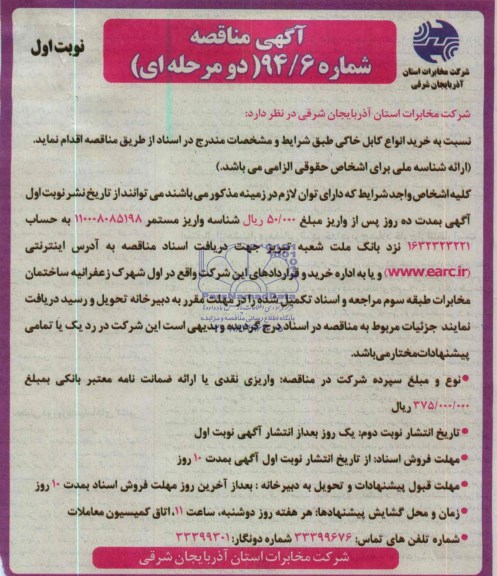 آگهی مناقصه
شماره ۹۴/۶( دو مرحله ای)
نوبت اول
شرکت مخابرات استان
آذربایجان شرقی
شرکت مخابرات استان آذربایجان شرقی در نظر دارد:
نسبت به خرید انواع کابل خاکی طبق شرایط و مشخصات مندرج در اسناد از طریق مناقصه اقدام نماید.
(ارائه شناسه ملی برای اشخاص حقوقی الزامی می باشد.)
کلیه اشخاص واجد شرایط که دارای توان لازم در زمینه مذکور می باشند می توانند از تاریخ نشر نوبت اول
آگهی بمدت ده روز پس از واریز مبلغ ۵۰/۰۰۰ ریال شناسه واریز مستمر ۱۱۰۰۰۸۰۸۵۱۹۸ به حساب
۱۶۳۲۲۲۲۲۲۱ نزد بانک ملت شعبه تبریز جهت دریافت اسناد مناقصه به آدرس اینترنتی
(www.earc.ir) و یا به اداره خرید و قراردادهای این شرکت واقع در اول شهرک زعفرانیه ساختمان
مخابرات طبقه سوم مراجعه و اسناد تکمیل شده را در مهلت مقرر به دبیرخانه تحویل و رسید دریافت
نمایند جزئیات مربوط به مناقصه در اسناد درج گردیده و بدیهی است این شرکت در رد یک یا تمامی
پیشنهادات مختار می باشد.
● نوع و مبلغ سپرده شرکت در مناقصه: واریزی نقدی یا ارائه ضمانت نامه معتبر بانکی بمبلغ
۳۷۵/۰۰۰/۰۰۰ ریال
● تاریخ انتشار نوبت دوم: یک روز بعداز انتشار آگهی نوبت اول
● مهلت فروش اسناد: از تاریخ انتشار نوبت اول آگهی بمدت ۱۰ روز
● مهلت قبول پیشنهادات و تحویل به دبیرخانه : بعداز آخرین روز مهلت فروش اسناد بمدت ۱۰ روز
● زمان و محل گشایش پیشنهادها: هر هفته روز دوشنبه، ساعت ۱۱، اتاق کمیسیون معاملات
● شماره تلفن های تماس: ۳۳۳۹۹۶۷۶ شماره دونگار: ۳۳۳۹۹۳۰۱
شرکت مخابرات استان آذربایجان شرقی